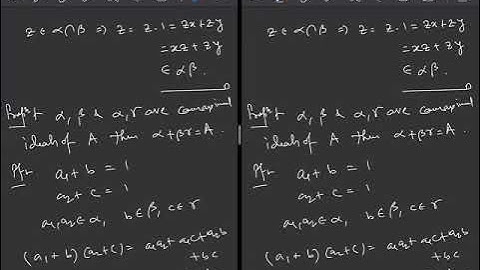 z ∈ α∩β ⇒ z = z·1 = zx+zy
= xz + zy
∈ αβ.
Prop: If α, β & α, γ are comaximal
ideals of A then α+βγ=A.
Pf:- a₁ + b = 1
a₂ + c = 1
a₁,a₂∈α, b∈β, c∈γ
(a₁+b)(a₂+c) = a₁a₂+a₁c+a₂b
+bc
z ∈ α∩β ⇒ z = z·1 = zx+zy
= xz + zy
∈ αβ.
Prop: If α, β & α, γ are comaximal
ideals of A then α+βγ=A.
Pf:- a₁ + b = 1
a₂ + c = 1
a₁,a₂∈α, b∈β, c∈γ
(a₁+b)(a₂+c) = a₁a₂+a₁c+a₂b
+bc